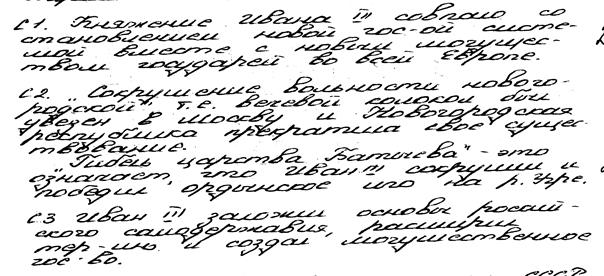 С1. Княжение Ивана III совпало со
становлением новой гос-ой систе-
мой вместе с новым могущес-
твом государей во всей Европе.
С2. "Сокрушение вольности нового-
родской", т.е. вечевой колокол был
увезен в Москву и Новгородская
республика прекратила свое сущес-
твование.
"Гибель царства Батыева" - это
означает, что Иван III сокрушил и
победил ордынское иго на р. Угре.
С3 Иван III заложил основы россий-
ского самодержавия, расширил
тер-ию и создал могущественное
гос-во.
СССР